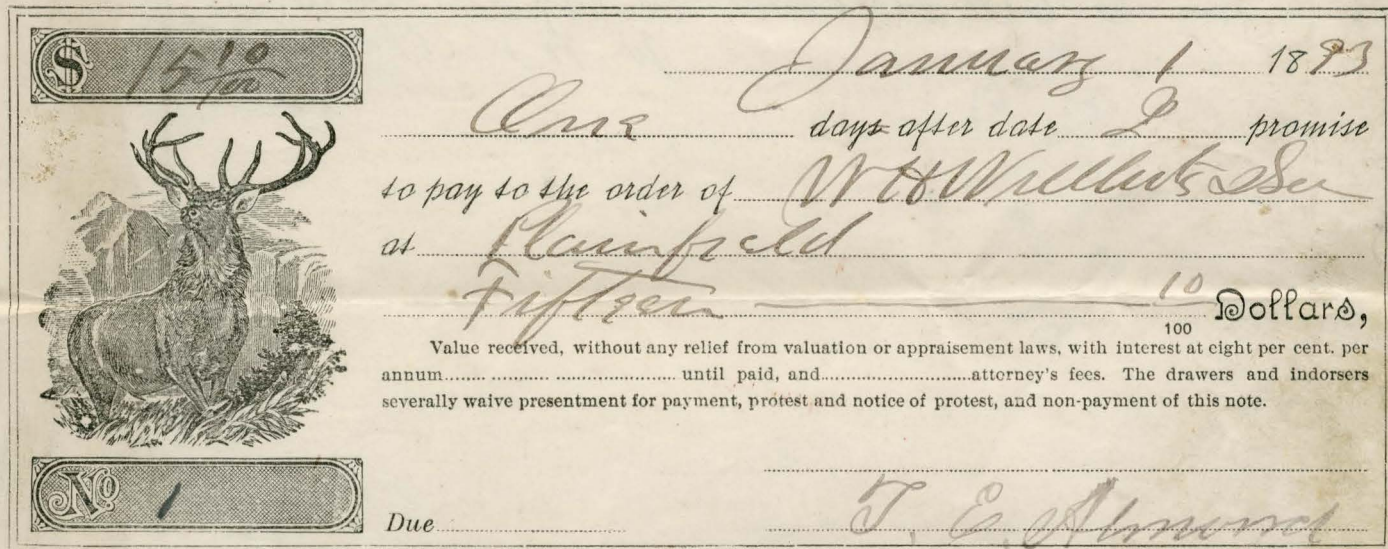 $ 15 10/100
January 1 1893
One days after date I promise
to pay to the order of W H Willhite &
at Plainfield
Fifteen 10/100 Dollars,
Value received, without any relief from valuation or appraisement laws, with interest at eight per cent. per
annum........ ............... ........................ until paid, and..............................attorney's fees. The drawers and indorsers
severally waive presentment for payment, protest and notice of protest, and non-payment of this note.
No 1
Due
T. E. Almond